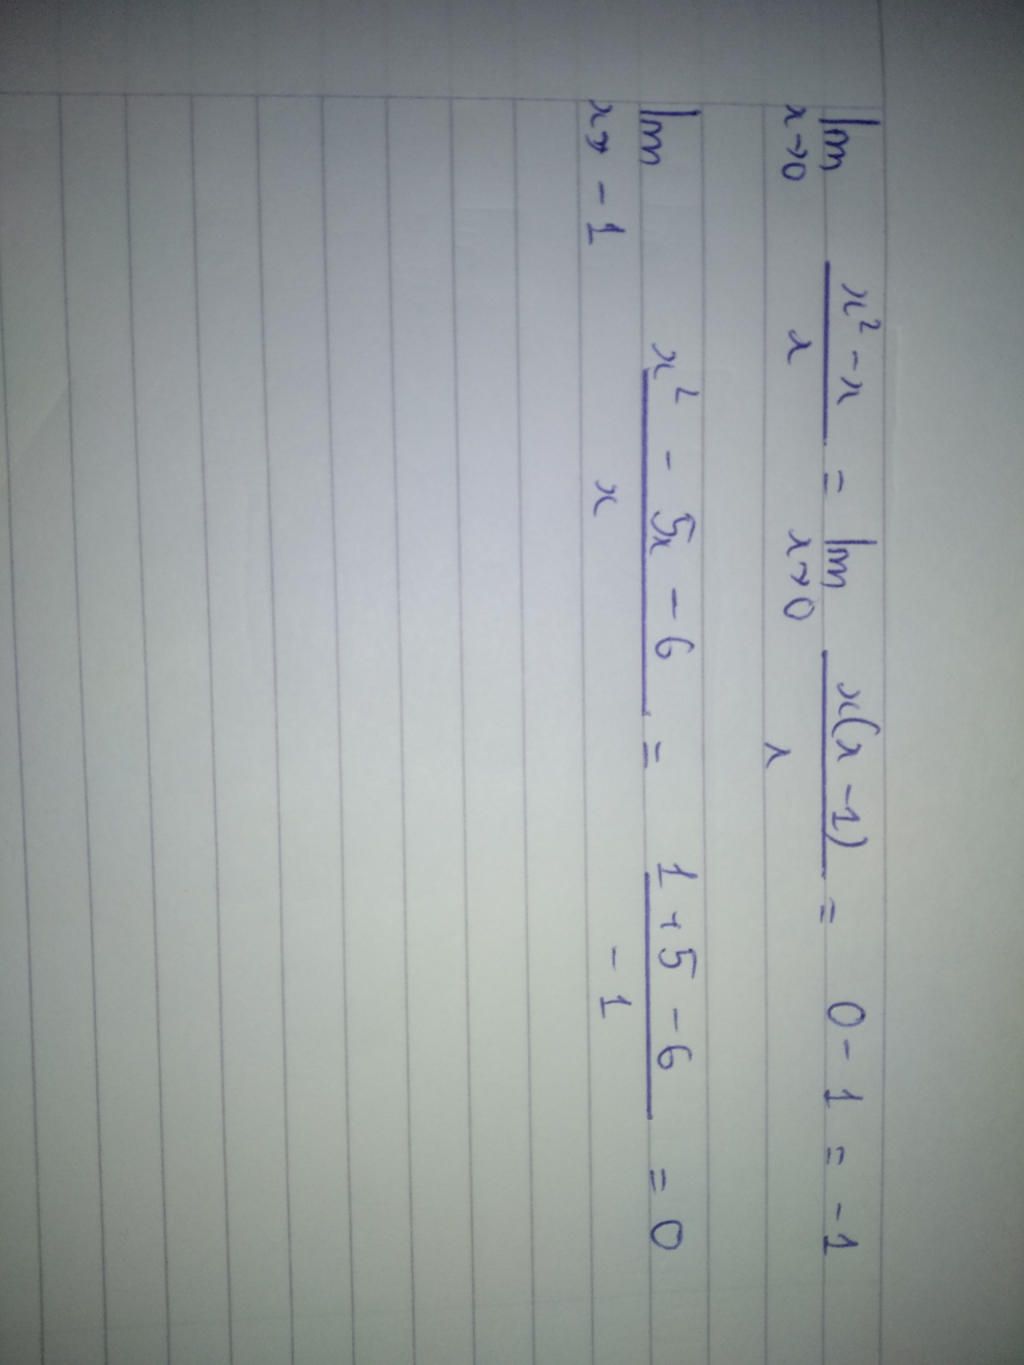 lim x→0 x² - x / x = lim x→0 x(x - 1) / x = 0 - 1 = -1
lim x→ -1 x² - 5x - 6 / x = 1 + 5 - 6 / -1 = 0